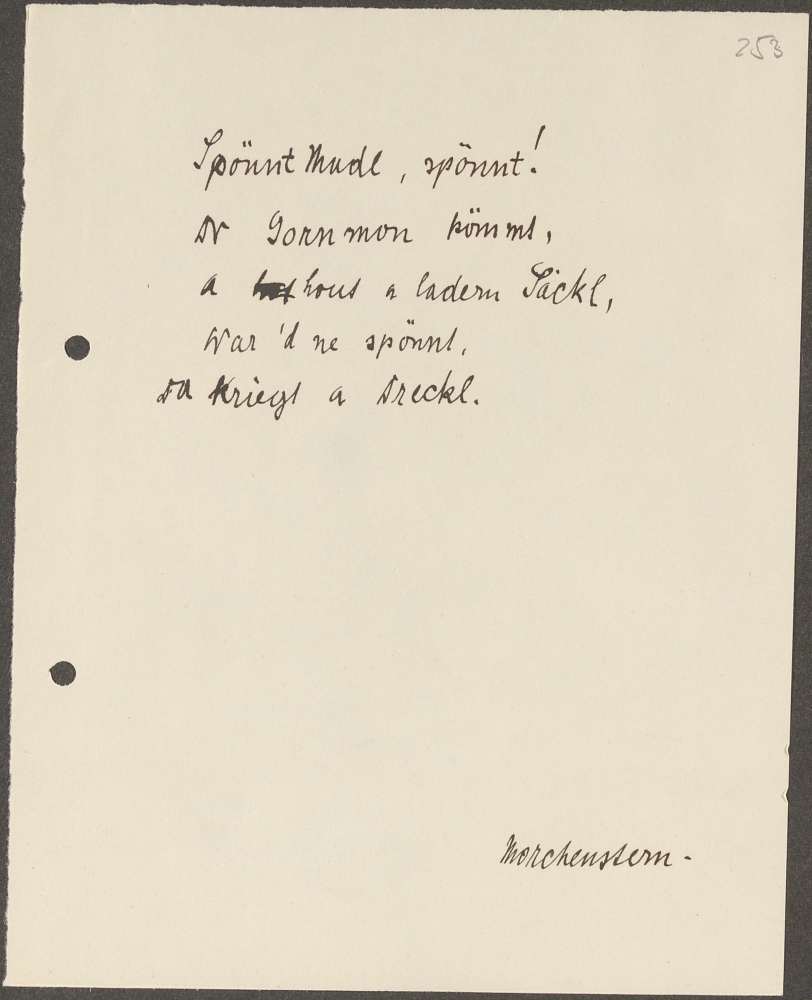 253
Spönnt Madl, spönnt!
Dr Gornmon kömmt,
a hout a ladern Säckl,
War 'd ne spönnt,
Da kriegt a Dreckl.
Morchenstern.